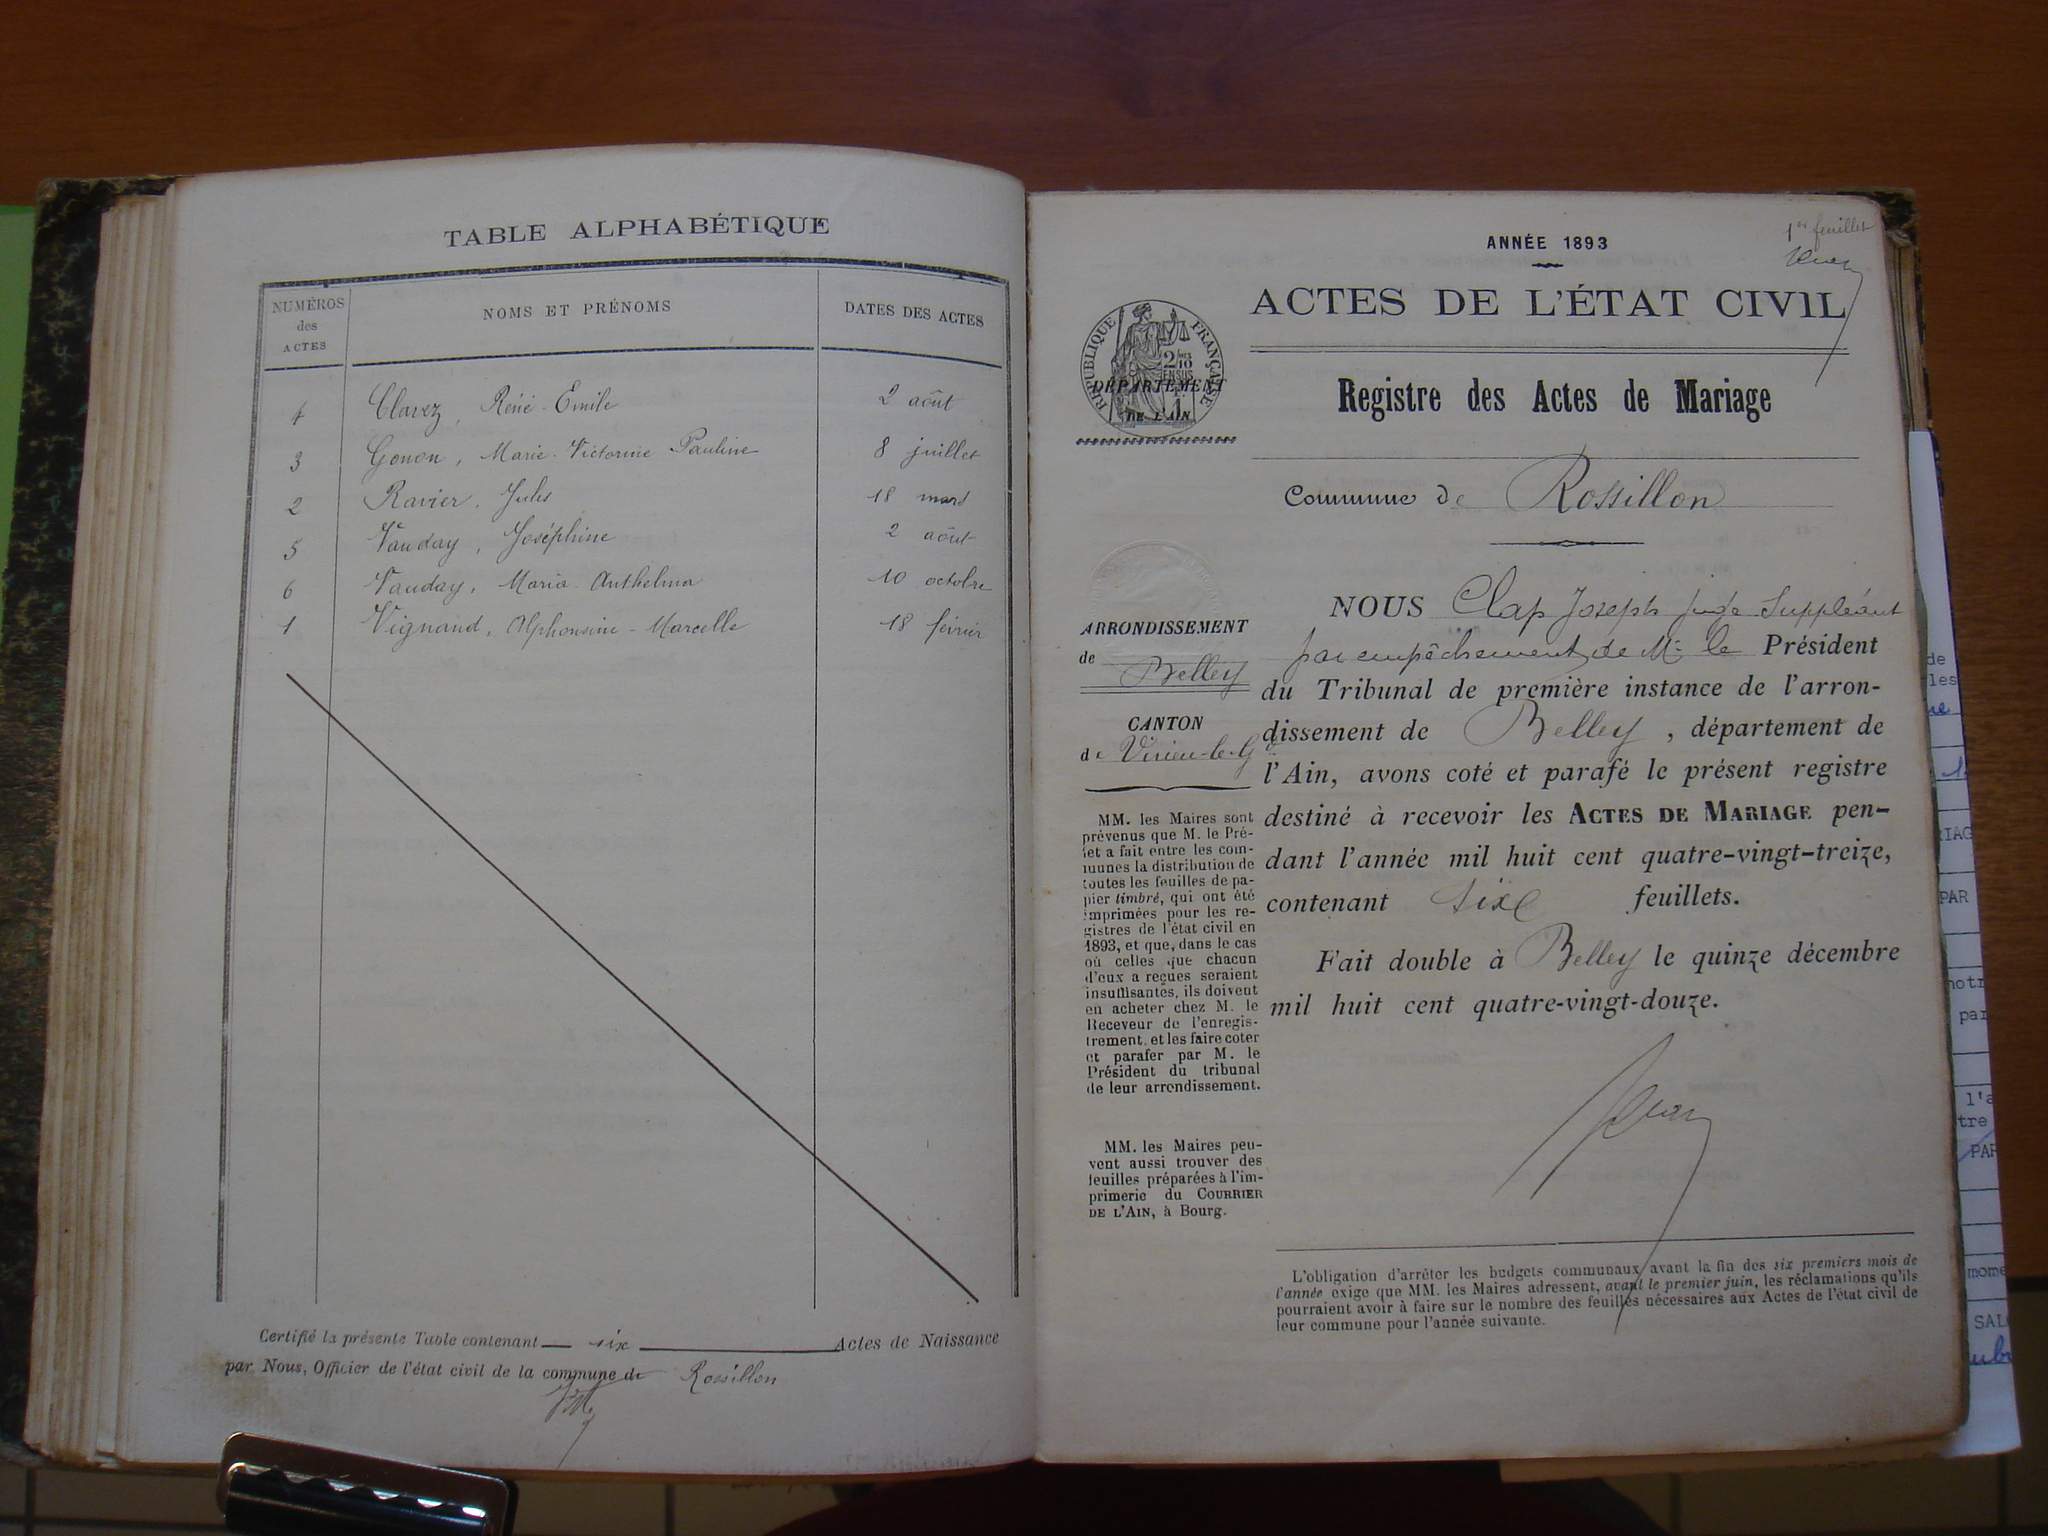 TABLE ALPHABÉTIQUE
NUMÉROS des ACTES
NOMS ET PRÉNOMS
DATES DES ACTES
4 Clavez, René-Emile 2 août
3 Gonon, Marie-Victorine Pauline 8 juillet
2 Ravier, Jules 18 mars
5 Vauday, Joséphine 2 août
6 Vauday, Maria Anthelma 10 octobre
1 Vignand, Alphonsine-Marcelle 18 février
Certifié la présente Table contenant six Actes de Naissance
par Nous, Officier de l'état civil de la commune de Rossillon
1er feuillet
ANNÉE 1893
ACTES DE L'ÉTAT CIVIL
RÉPUBLIQUE FRANÇAISE
2/10 EN SUS
DÉPARTEMENT
DE L'AIN
Registre des Actes de Mariage
Commune de Rossillon
ARRONDISSEMENT
de Belley
CANTON
de Virieu-le-Gd
MM. les Maires sont
prévenus que M. le Pré-
fet a fait entre les com-
munes la distribution de
toutes les feuilles de pa-
pier timbré, qui ont été
imprimées pour les re-
gistres de l'état civil en
1893, et que, dans le cas
où celles que chacun
d'eux a reçues seraient
insuffisantes, ils doivent
en acheter chez M. le
Receveur de l'enregis-
trement, et les faire coter
et parafer par M. le
Président du tribunal
de leur arrondissement.
MM. les Maires peu-
vent aussi trouver des
feuilles préparées à l'im-
primerie du COURRIER
DE L'AIN, à Bourg.
NOUS Clap Joseph Juge Suppléant
par empêchement de Mr le Président
du Tribunal de première instance de l'arron-
dissement de Belley, département de
l'Ain, avons coté et parafé le présent registre
destiné à recevoir les ACTES DE MARIAGE pen-
dant l'année mil huit cent quatre-vingt-treize,
contenant six feuillets.
Fait double à Belley le quinze décembre
mil huit cent quatre-vingt-douze.
L'obligation d'arrêter les budgets communaux avant la fin des six premiers mois de
l'année exige que MM. les Maires adressent, avant le premier juin, les réclamations qu'ils
pourraient avoir à faire sur le nombre des feuilles nécessaires aux Actes de l'état civil de
leur commune pour l'année suivante.